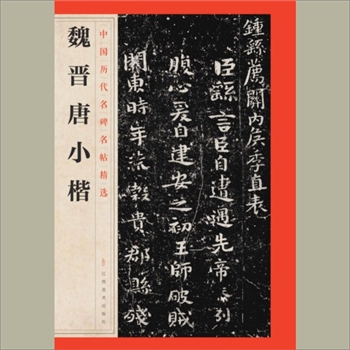 魏晋唐小楷
中国历代名碑名帖精选
江西美术出版社
鍾繇薦關内矦季直表
臣繇言臣自遭遇先帝忝列
腹心爰自建安之初王師破賊
關東時年荒穀貴郡縣殘